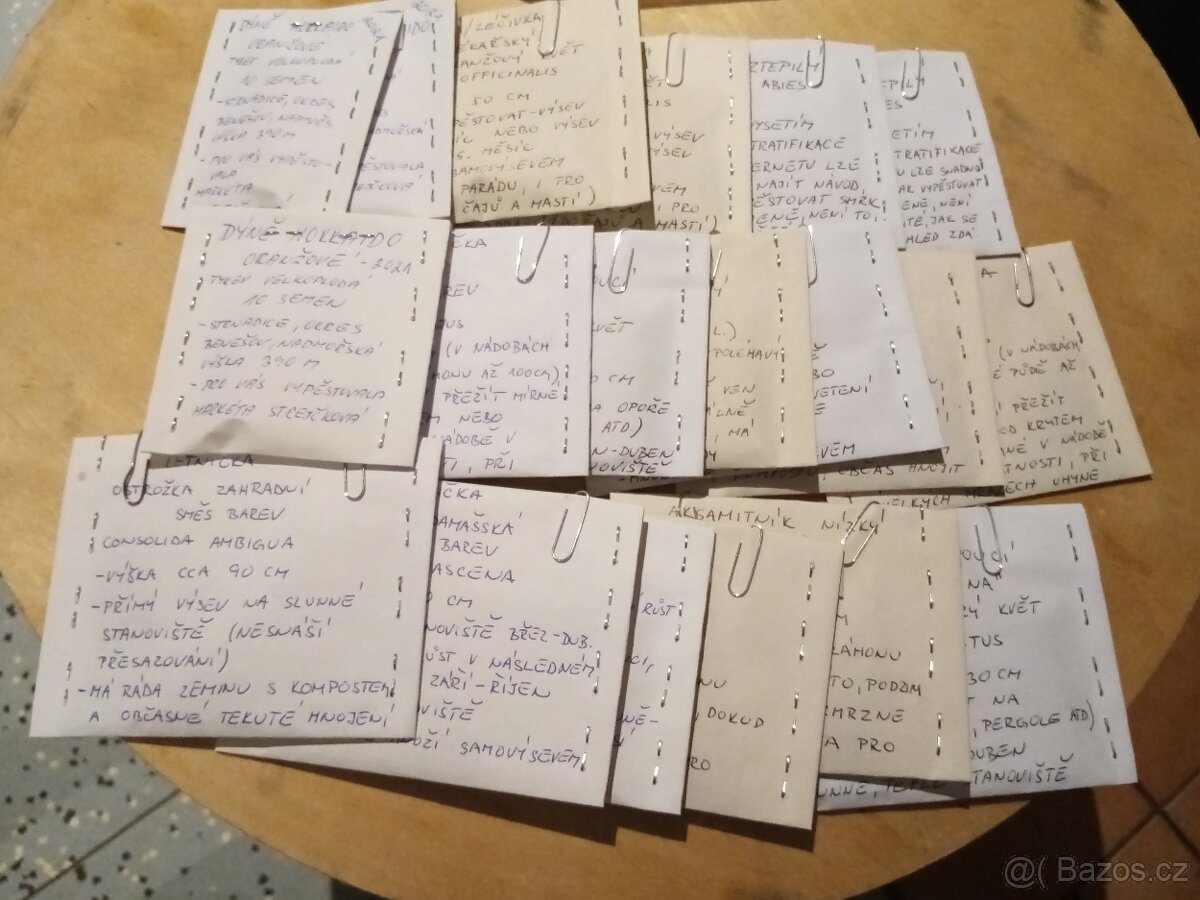 DÝNĚ HOKKAIDO
ORANŽOVÉ
TYKEV VELKOPLODÁ
10 SEMEN
- STRNADICE, OKRES
BENEŠOV, NADMOŘSKÁ
VÝŠKA 390 M
- PRO VÁS VYPĚSTO-
VALA
MARKÉTA
/LÉČIVKA
ÉKAŘSKÝ
ANŽOVÝ KVĚT
OFFICINALIS
50 CM
PĚSTOVAT-VÝSEV
NEBO VÝSEV
5. MĚSÍC
SAMOVÝSEVEM
PARÁDU, I PRO
ČAJŮ A MASTÍ)
KVĚT
LIS
VÝSEV
VÝSEV
VEM
I PRO
(DO ČAJŮ A MASTÍ)
ZTEPILÝ
ABIES
VYSETÍM
TRATIFIKACE
ERNETU LZE
NAJÍT NÁVOD,
ĚSTOVAT SMRK
NENÍ TO,
EPILÝ
ES
ETÍM
TRATIFIKACE
U LZE SNADNO
VYPĚSTOVAT
ENĚ, NENÍ
TĚ, JAK SE
HLED ZDÁ
DÝNĚ HOKKAIDO
ORANŽOVÉ - 2021
TYKEV VELKOPLODÁ
10 SEMEN
- STRNADICE, OKRES
BENEŠOV, NADMOŘSKÁ
VÝŠKA 390 M
- PRO VÁS VYPĚSTOVALA
MARKÉTA STREJČKOVÁ
ČKA
AREV
JUS
(V NÁDOBÁCH
HONU AŽ 100CM)
PŘEŽÍT MÍRNÉ
EM NEBO
NÁDOBĚ V
TI, PŘI
UCÍ
KVĚT
0 CM
A OPOŘE
ATD)
N-DUBEN
NOVIŠTĚ
L.)
POLÉHAVÝ
VEN
ÁLNĚ
, MÁ
BO
VETENÍ
E
VEM
OBČAS HNOJIT
A
(V NÁDOBÁCH
É PŮDĚ AŽ
PŘEŽÍT
OD KRYTEM
NÉ V NÁDOBĚ
TNOSTI, PŘI
ECH UHYNE
LETNIČKA
OSTROŽKA ZAHRADNÍ
SMĚS BAREV
CONSOLIDA AMBIGUA
- VÝŠKA CCA 90 CM
- PŘÍMÝ VÝSEV NA SLUNNÉ
STANOVIŠTĚ (NESNÁŠÍ
PŘESAZOVÁNÍ)
- MÁ RÁDA ZEMINU S KOMPOSTEM
A OBČASNÉ TEKUTÉ HNOJENÍ
ČKA
DAMAŠSKÁ
BAREV
ASCENA
CM
NOVIŠTĚ BŘEZ-DUB.
ŮST V NÁSLEDNÉM
ZÁŘÍ-ŘÍJEN
OVIŠTĚ
NOŽÍ SAMOVÝSEVEM
RŮST
UCÍ,
NĚ-
NÍ
NU
, DOKUD
RO
AKSAMITNÍK NÍZKÝ
ZÁHONU
TO, PODZIM
ZMRZNE
A PRO
OUCÍ
NA"
KVĚT
TUS
30 CM
T NA
, PERGOLE ATD)
DUBEN
TANOVIŠTĚ
UNNÉ, TEPLÉ
@( Bazos.cz